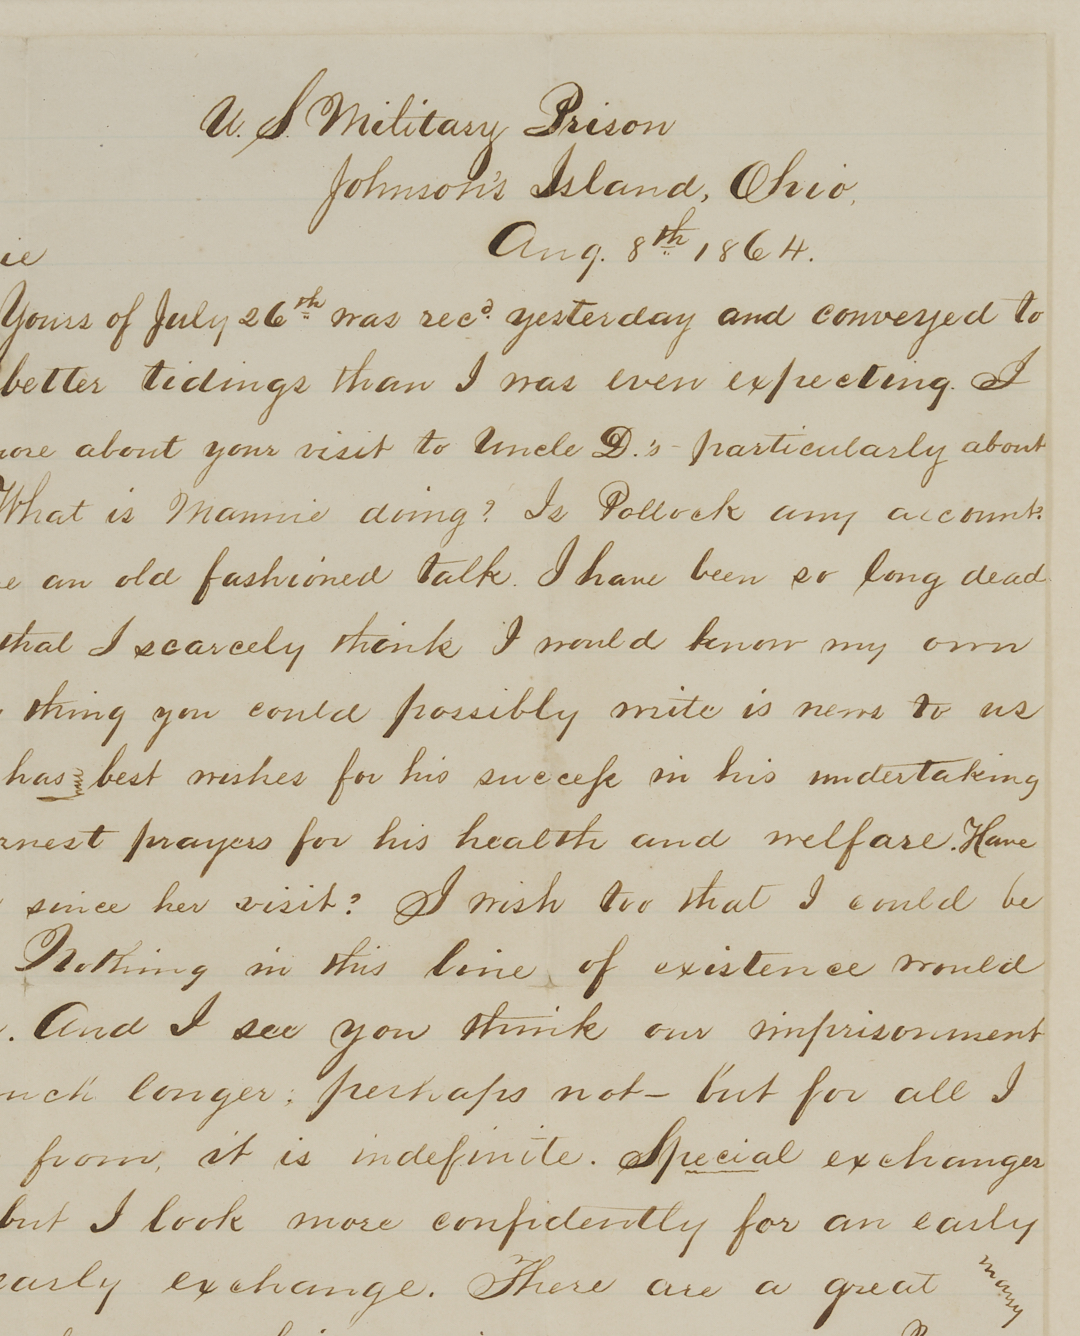 U. S. Military Prison
Johnson's Island, Ohio,
Aug. 8th 1864.
ie
Yours of July 26th was recd. yesterday and conveyed to
better tidings than I was even expecting. I
ore about your visit to Uncle D.'s - particularly about
What is Mannie doing? Is Pollock any account?
e an old fashioned talk. I have been so long dead
that I scarcely think I would know my own
thing you could possibly write is news to us
has my best wishes for his success in his undertaking
rnest prayers for his health and welfare. Have
since her visit? I wish too that I could be
Nothing in this line of existence would
. And I see you think our imprisonment
uch longer; perhaps not - but for all I
from, it is indefinite. Special exchanges
but I look more confidently for an early
early exchange. There are a great many